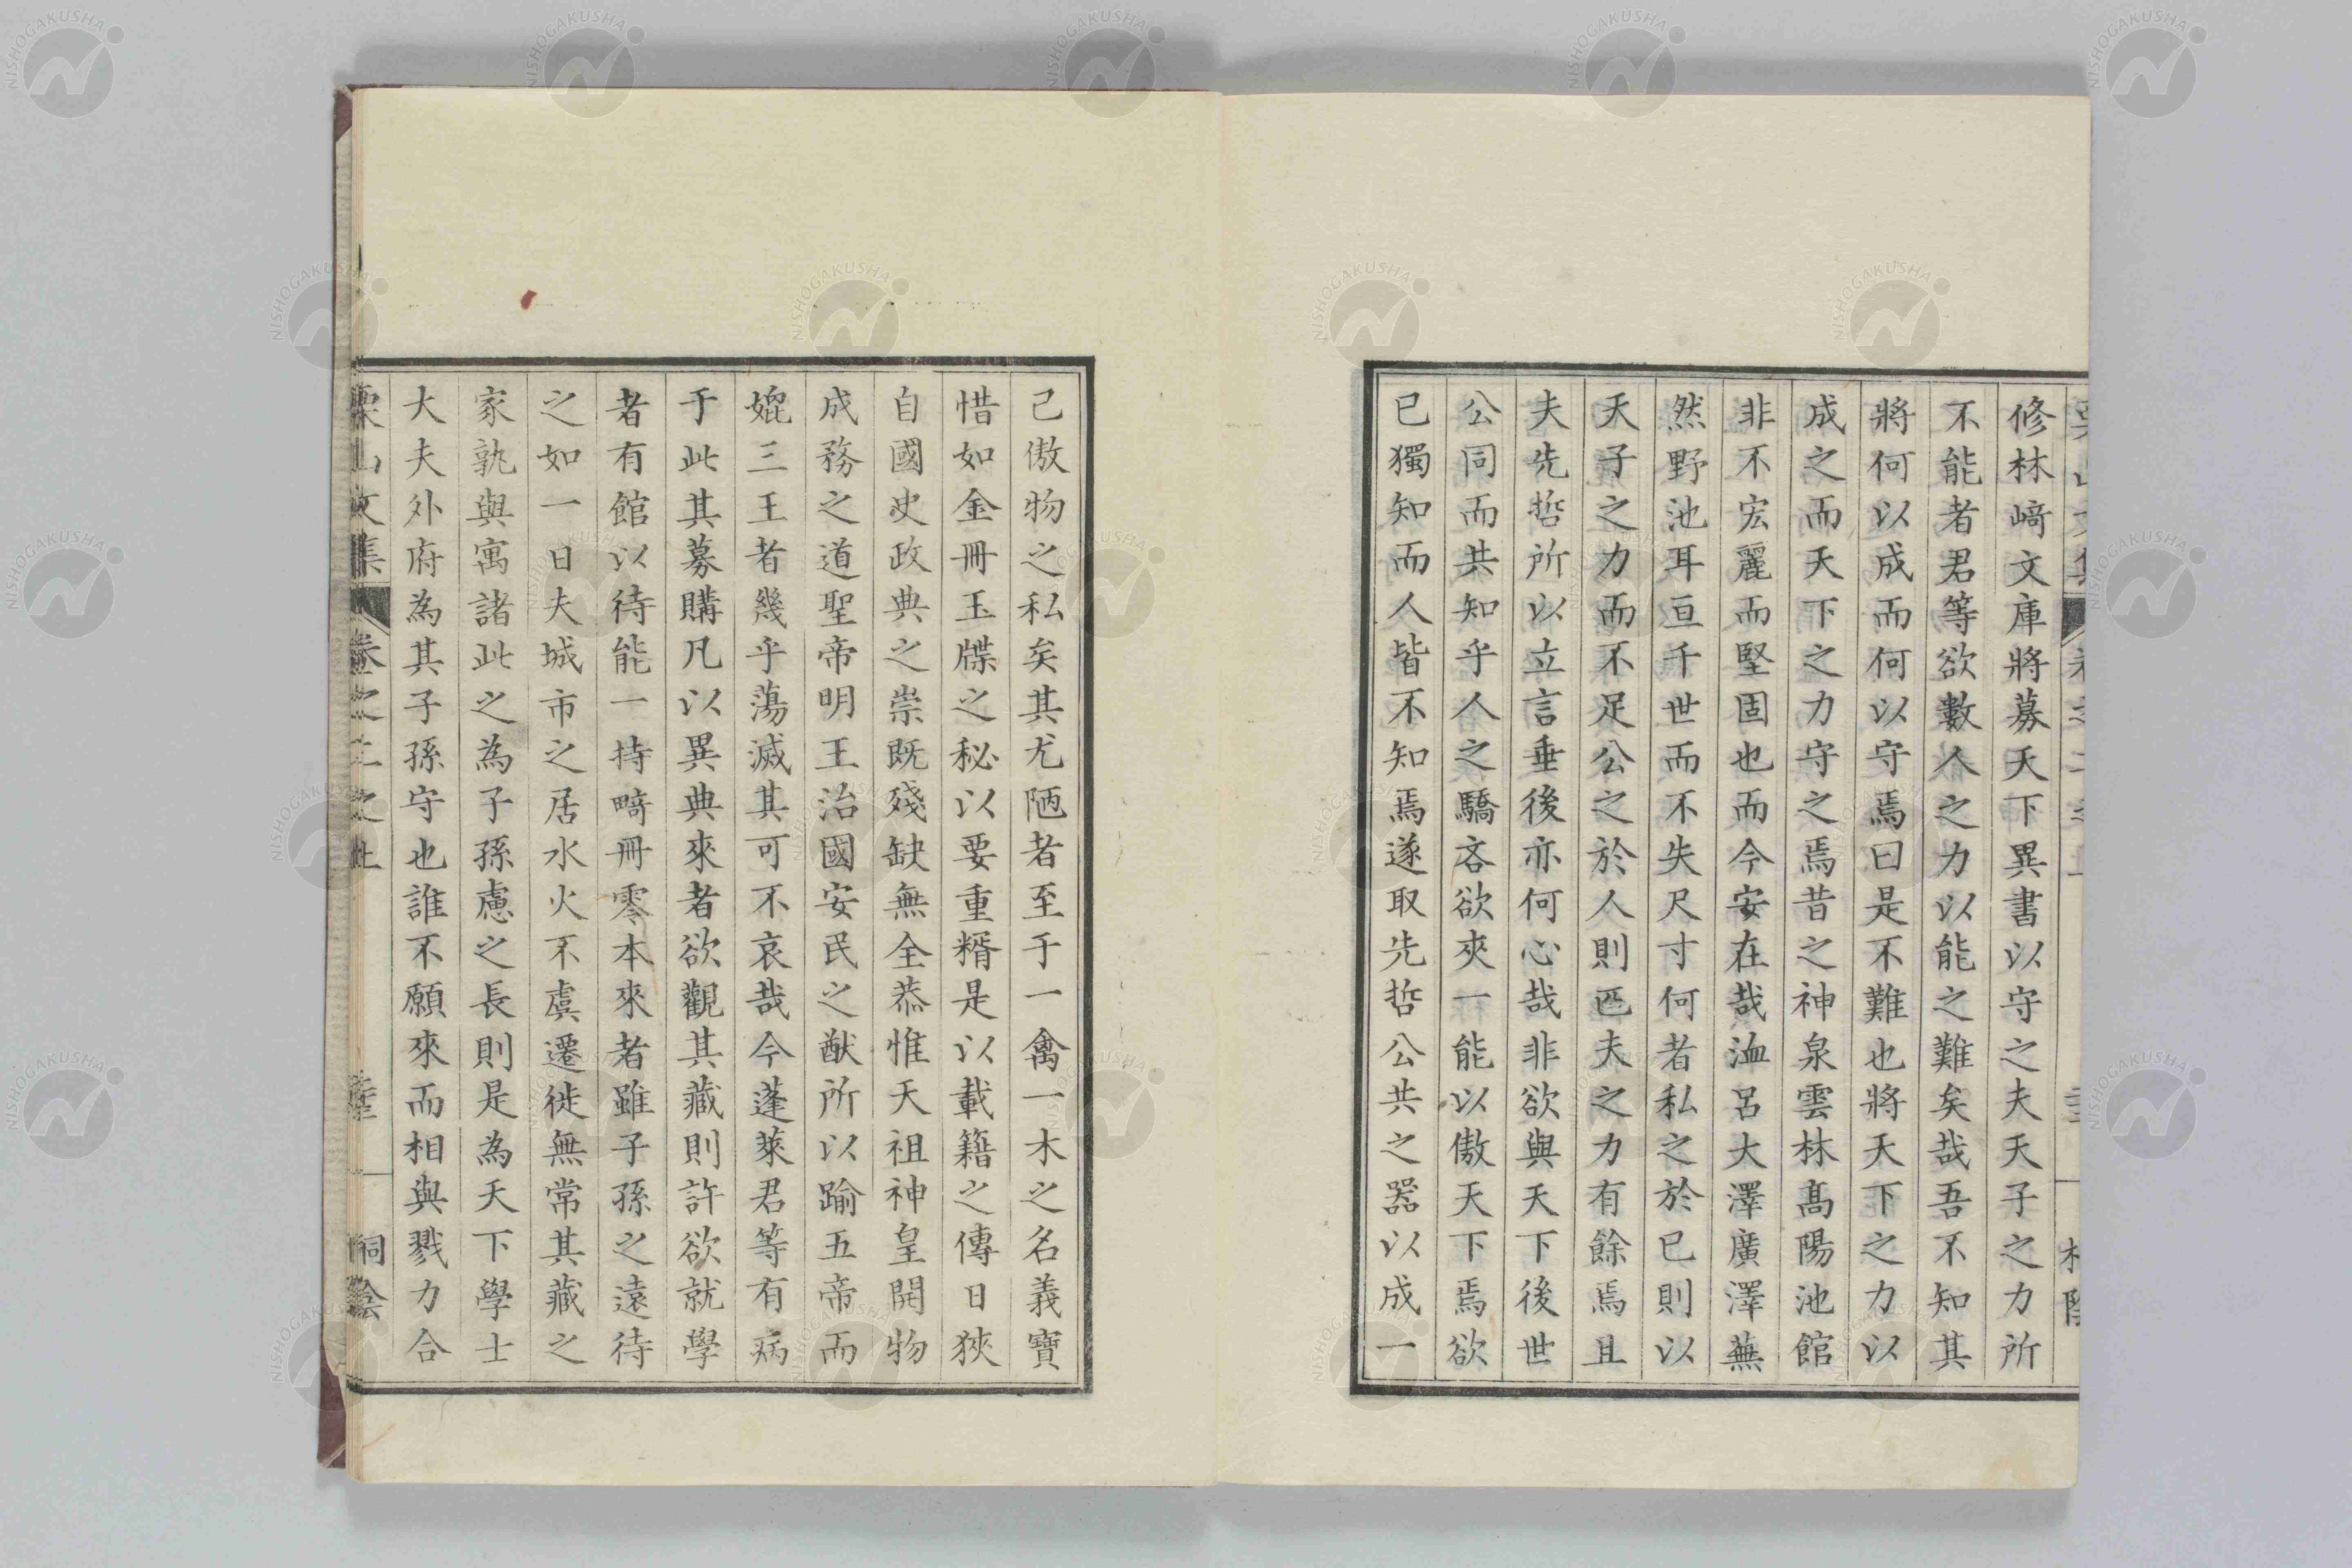 修林﨑文庫將募天下異書以守之夫天子之力所
不能者君等欲數人之力以能之難矣哉吾不知其
將何以成而何以守焉曰是不難也將天下之力以
成之而天下之力守之焉昔之神泉雲林髙陽池館
非不宏麗而堅固也而今安在哉洫呂大澤廣澤蕪
然野池耳亘千世而不失尺寸何者私之於已則以
天子之力而不足公之於人則匹夫之力有餘焉且
夫先哲所以立言垂後亦何心哉非欲與天下後世
公同而共知乎人之驕吝欲夾一能以傲天下焉欲
已獨知而人皆不知焉遂取先哲公共之器以成一
己傲物之私矣其尤陋者至于一禽一木之名義寶
惜如金冊玉牒之秘以要重糈是以載籍之傳日狹
自國史政典之崇既殘缺無全恭惟天祖神皇開物
成務之道聖帝明王治國安民之猷所以踰五帝而
媲三王者幾乎蕩滅其可不哀哉今蓬萊君等有病
于此其募購凡以異典來者欲觀其藏則許欲就學
者有館以待能一持畸冊零本來者雖子孫之遠待
之如一日夫城市之居水火不虞遷徙無常其藏之
家孰與寓諸此之為子孫慮之長則是為天下學士
大夫外府為其子孫守也誰不願來而相與戮力合
栗山文集 卷之二之上
NISHOGAKUSHA